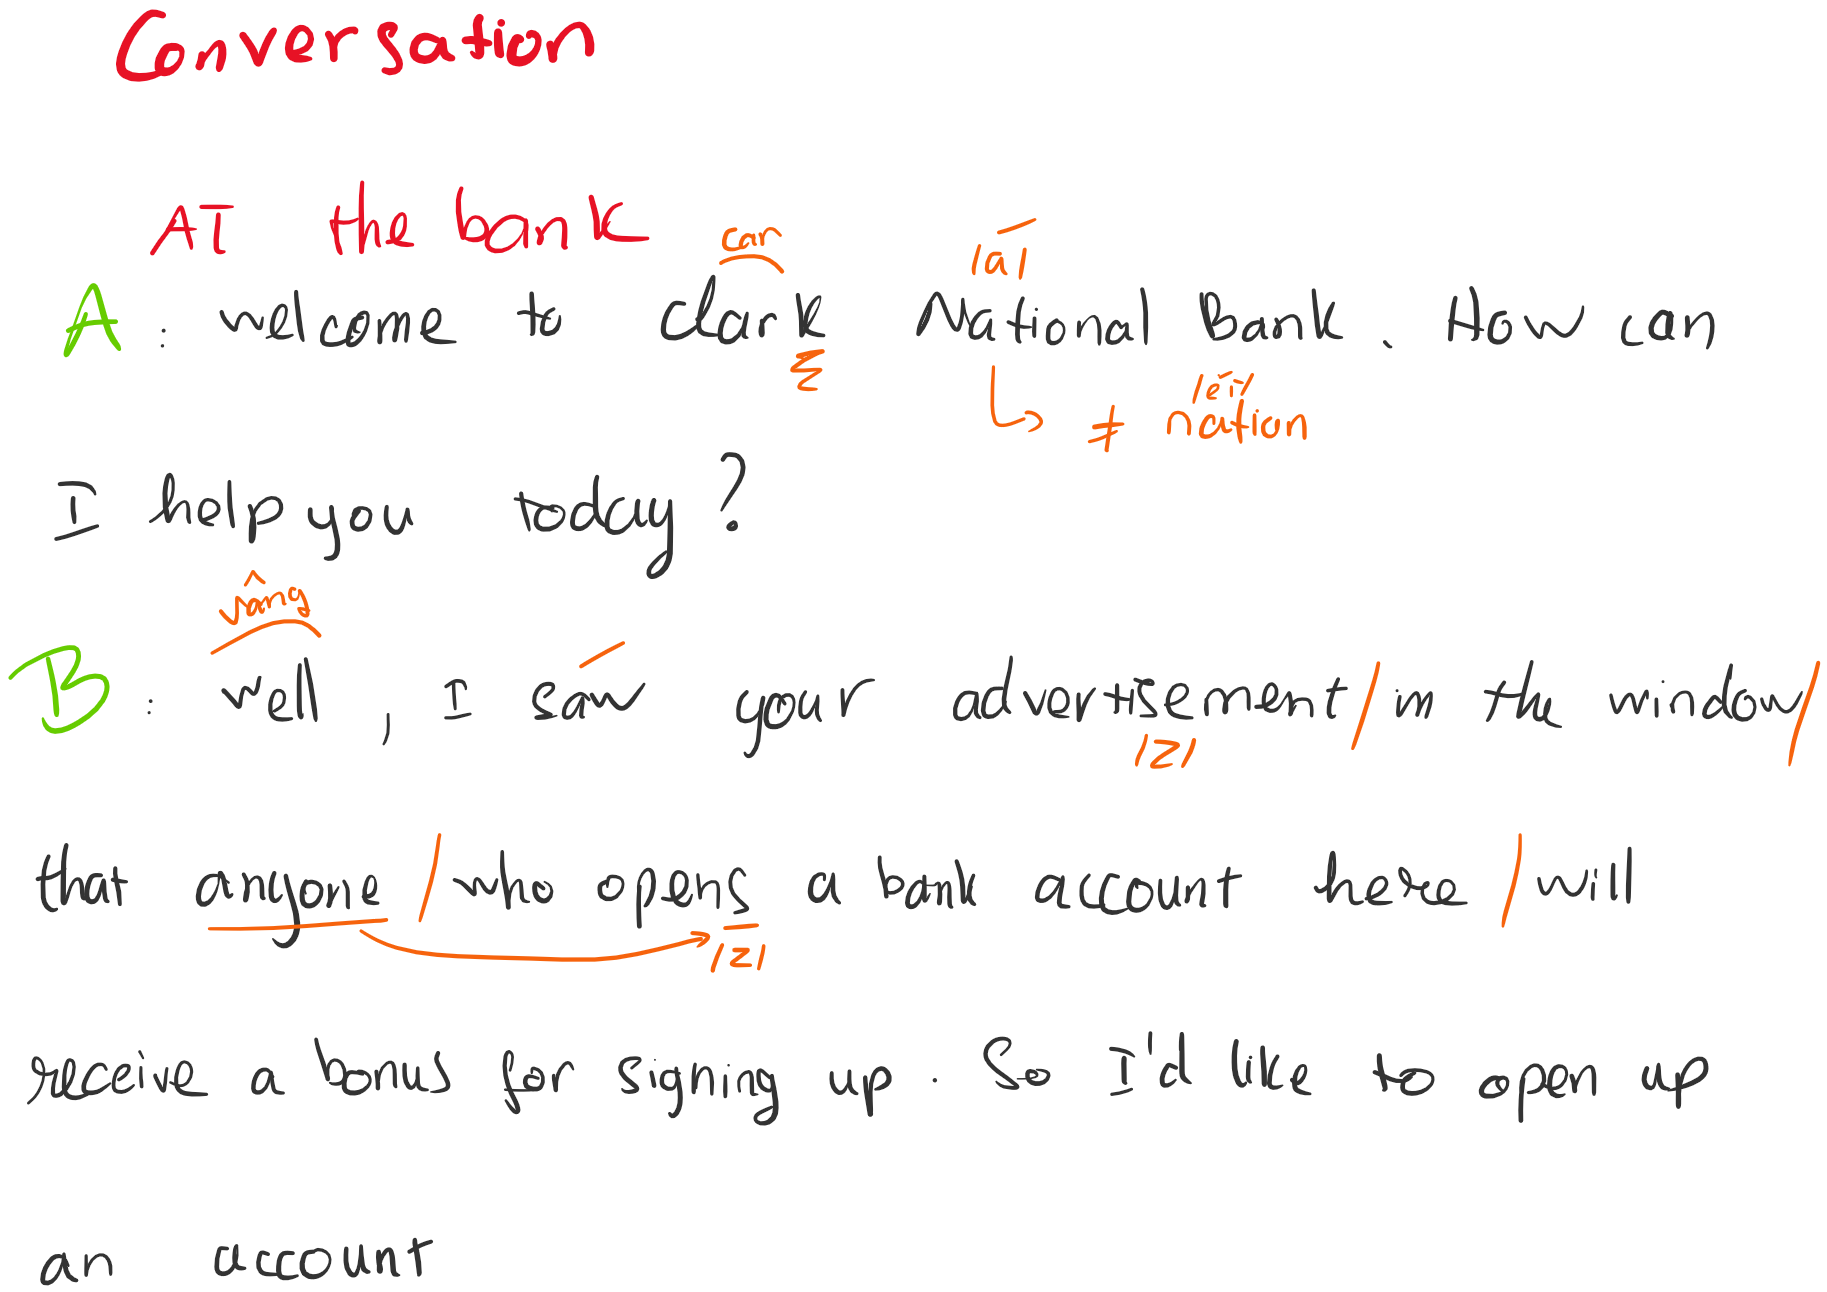 Conversation
AT the bank
car /a/
A: welcome to clark National Bank. How can
/ei/
≠ nation
I help you today?
vâng
B: well, I saw your advertisement/in the window/
/z/
that anyone/who opens a bank account here/will
/z/
receive a bonus for signing up. So I'd like to open up
an account